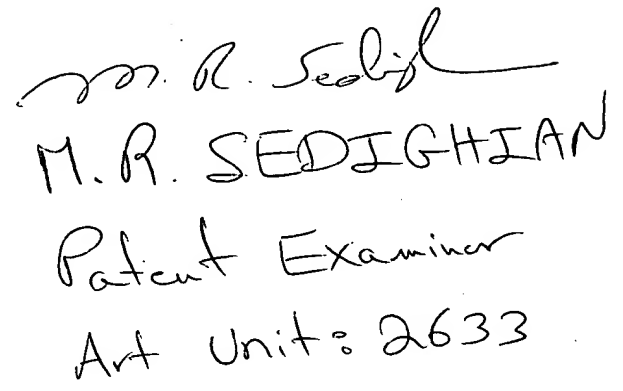 M. R. Sedigh
M. R. SEDIGHIAN
Patent Examiner
Art Unit: 2633